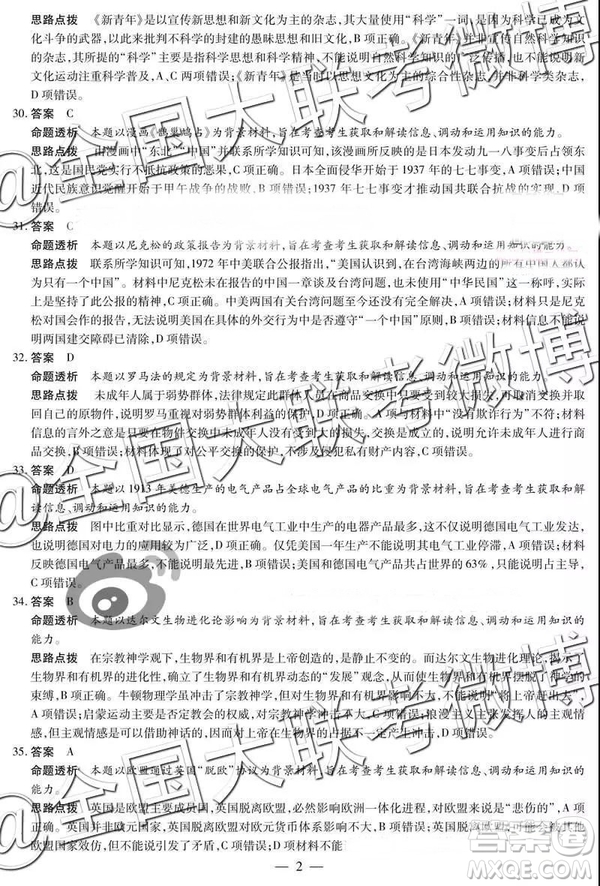 思路点拨 《新青年》是以宣传新思想和新文化为主的杂志,其大量使用“科学”一词,是因为其成为文
化斗争的武器,以此来批判不科学的封建的愚昧思想和旧文化,B项正确。《新青年》并非宣传自然科学知识
的杂志,其所提的“科学”主要是指科学思想和科学精神,不能说明自然科学知识的广泛传播,也不能说明新
文化运动注重科学普及,A、C两项错误;《新青年》是以宣传新思想、新文化为主的综合性杂志,并非科学类杂志,
D项错误。
30. 答案 C
命题透析 本题以漫画《鹊巢鸠占》为背景材料,旨在考查考生获取和解读信息、调动和运用知识的能力。
思路点拨 由漫画中“东北”“中国”并联系所学知识可知,该漫画所反映的是日本发动九一八事变后占领东
北,这是国民党实行不抵抗政策的结果,C项正确。日本全面侵华开始于1937年的七七事变,A项错误;中国
近代民族意识觉醒开始于甲午战争的战败,B项错误;1937年七七事变才推动国共联合抗战的实现,D项
错误。
31. 答案 C
命题透析 本题以尼克松的政策报告为背景材料,旨在考查考生获取和解读信息、调动和运用知识的能力。
思路点拨 联系所学知识可知,1972年中美联合公报指出,“美国认识到,在台湾海峡两边的所有中国人都认
为只有一个中国”。材料中尼克松在报告的中国一章谈及台湾问题,也未使用“中华民国”这一称呼,实际上
已坚持了此公报的精神,C项正确。中美两国有关台湾问题至今还没有完全解决,A项错误;材料仅是尼克
松对国会作的报告,无法说明美国在具体的外交行为中坚守“一个中国”原则,B项错误;材料信息不能说明
两国建交障碍已清除,D项错误。
32. 答案 D
命题透析 本题以罗马法的规定为背景材料,旨在考查考生获取和解读信息、调动和运用知识的能力。
思路点拨 未成年人属于弱势群体,法律规定此群体人员在商品交换中只要受到较大损失,可取消交换并取
回自己的原物件,说明罗马重视对弱势群体利益的保护,D项正确。A项与材料中“没有欺诈行为”不符;材料
信息的言外之意是只要在物件交换中未成年人没有受到大的损失,交换是成立的,说明允许未成年人从事商
品交换,B项错误;材料体现了对公平交换的保护,不涉及私有财产的内容,C项错误。
33. 答案 D
命题透析 本题以1913年美德生产的电气产品占全球电气产品的比重为背景材料,旨在考查考生获取和解读
信息、调动和运用知识的能力。
思路点拨 图中比重对比显示,德国在世界电气工业中生产的电器产品最多,这不仅说明德国电气工业发达,也说
明德国对电力的应用较为广泛,D项正确。仅凭美国一年生产,不能说明美国电气工业停滞,A项错误;材料
反映德国电气产品最多,不能说明最先进,B项错误;美国和德国电气产品共占世界的63%,只能说占主导,
C项错误。
34. 答案 B
命题透析 本题以达尔文生物进化论影响为背景材料,旨在考查考生获取和解读信息、调动和运用知识的
能力。
思路点拨 在宗教神学观下,生物界和有机界是上帝创造的,是静止不变的。而达尔文生物进化理论,揭示了
生物界和有机界的进化性,确立了生物界和有机界的“发展”观念,从而使生物界和有机界摆脱了神学的
束缚,B项正确。牛顿物理学虽冲击了宗教神学,但没有在生物界和有机界领域“将上帝赶出大”,A项
错误;启蒙运动主要冲击的是宗教教会的权威,对宗教神学冲击不大,C项错误;浪漫主义文学表现的主观情
感,但主观情感是可以借助神话的,因而对上帝在生物界的占据不一定产生冲击,D项错误。
35. 答案 A
命题透析 本题以欧盟通过英国“脱欧”协议为背景材料,旨在考查考生获取和解读信息、调动和运用知识的
能力。
思路点拨 英国是欧盟主要成员国,英国脱离欧盟,必然影响欧洲一体化进程,对欧盟来说是“悲伤的”,A项
正确。英国并非欧元国家,英国脱离欧盟对欧元货币体系影响不大,B项错误;英国脱离欧盟,可能会被
欧盟国家效仿,但不一定产生了矛盾,C项错误;D项材料不能
— 2 —
@全国大联考微博
@全国大联考微博
@全国大联考微博